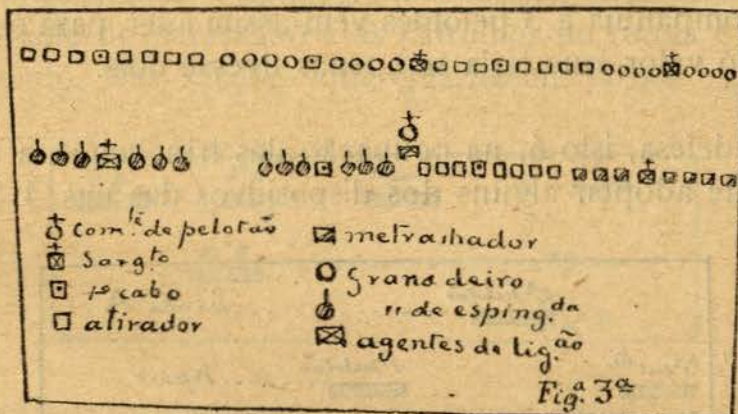 Com.te de pelotão
Sarg.to
1º cabo
atirador
metralhador
Granadeiro
" de esping.da
agentes de lig.ão
Fig.a 3ª